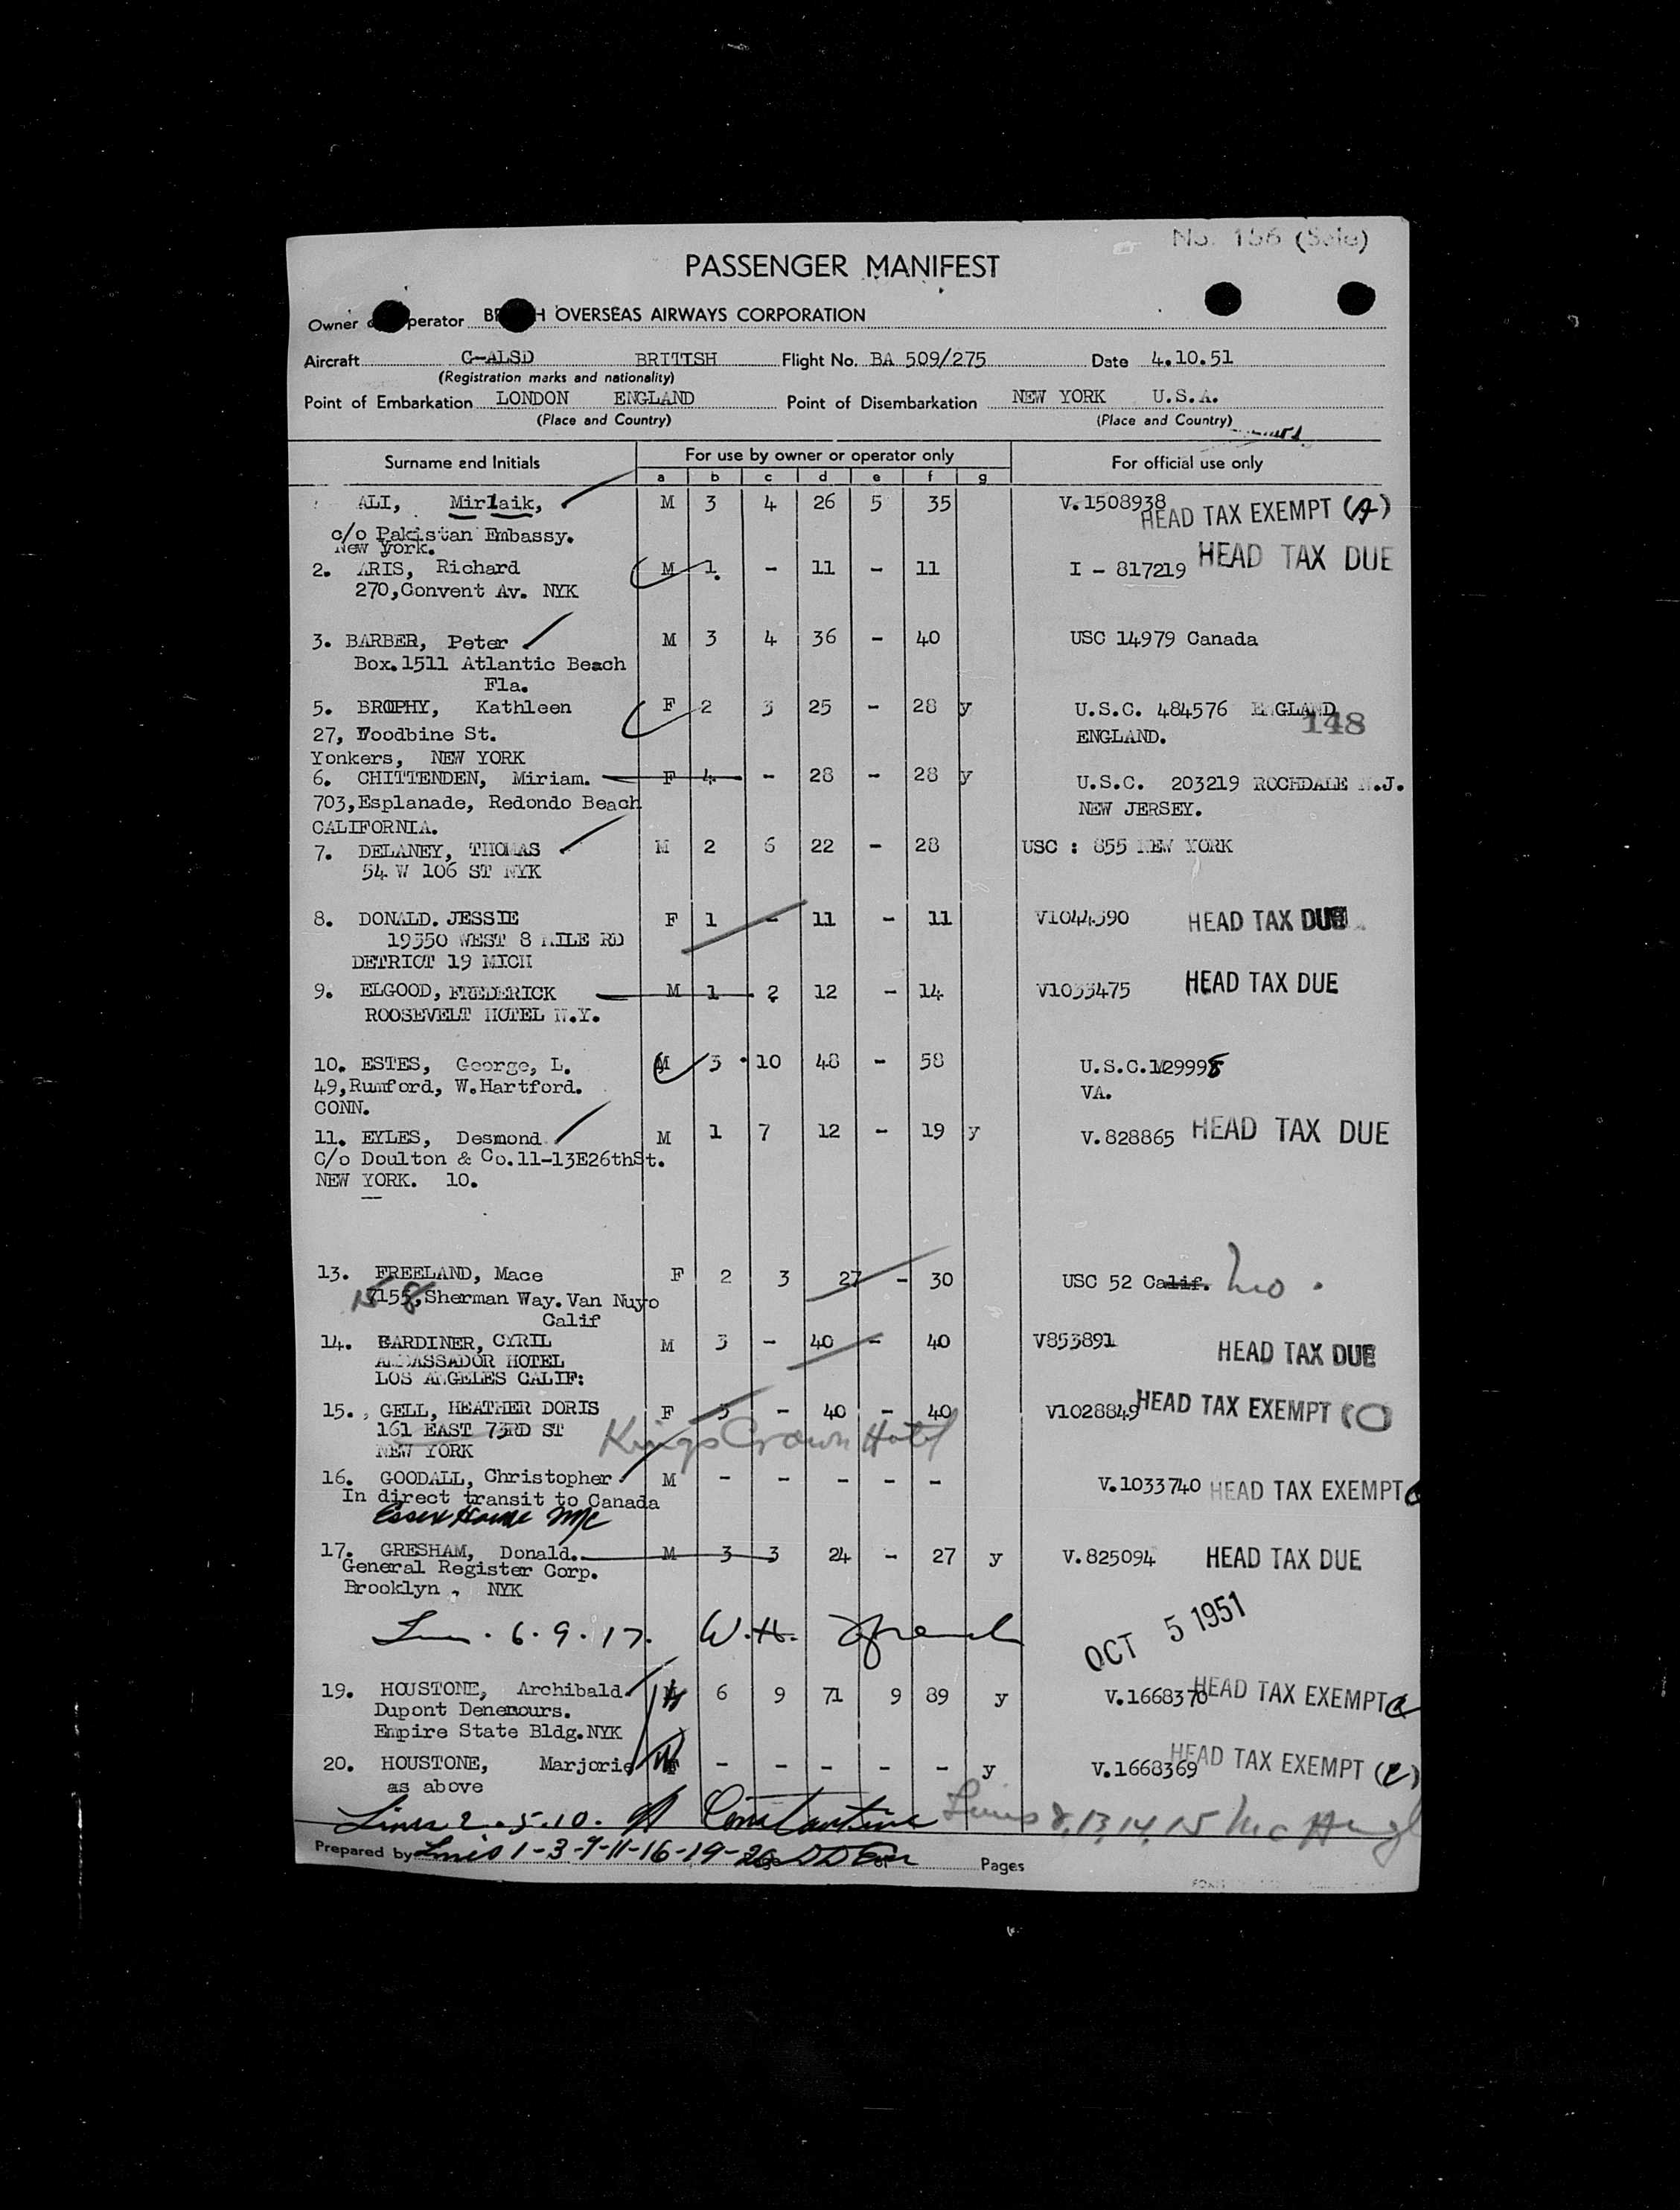 No. 156 (Sale)
PASSENGER MANIFEST
Owner perator B H OVERSEAS AIRWAYS CORPORATION
Aircraft G-ALSD BRITISH Flight No. BA 509/275 Date 4.10.51
(Registration marks and nationality)
Point of Embarkation LONDON ENGLAND Point of Disembarkation NEW YORK U.S.A.
(Place and Country) (Place and Country)
Surname and Initials For use by owner or operator only For official use only
a b c d e f g
ALI, Mirlaik, M 3 4 26 5 35 V.1508938 HEAD TAX EXEMPT (A)
c/o Pakistan Embassy.
New York.
2. ARIS, Richard M 1 - 11 - 11 I - 817219 HEAD TAX DUE
270,Convent Av. NYK
3. BARBER, Peter M 3 4 36 - 40 USC 14979 Canada
Box.1511 Atlantic Beach
Fla.
5. BROPHY, Kathleen F 2 3 25 - 28 y U.S.C. 484576 ENGLAND
27, Woodbine St. ENGLAND. 148
Yonkers, NEW YORK
6. CHITTENDEN, Miriam. F 4 - 28 - 28 y U.S.C. 203219 ROCHDALE N.J.
703,Esplanade, Redondo Beach NEW JERSEY.
CALIFORNIA.
7. DELANEY, THOMAS M 2 6 22 - 28 USC : 855 NEW YORK
54 W 106 ST NYK
8. DONALD. JESSIE F 1 - 11 - 11 V1044590 HEAD TAX DUE
19350 WEST 8 MILE RD
DETRIOT 19 MICH
9. ELGOOD, FREDERICK M 1 2 12 - 14 V1033475 HEAD TAX DUE
ROOSEVELT HOTEL N.Y.
10. ESTES, George, L. M 3 10 48 - 58 U.S.C.129998
49,Rumford, W.Hartford. VA.
CONN.
11. EYLES, Desmond M 1 7 12 - 19 y V.828865 HEAD TAX DUE
C/o Doulton & Co.11-13E26thSt.
NEW YORK. 10.
13. FREELAND, Mace F 2 3 27 - 30 USC 52 Calif. Mo.
7155,Sherman Way.Van Nuyo
Calif
14. GARDINER, CYRIL M 3 - 40 - 40 V853891 HEAD TAX DUE
AMBASSADOR HOTEL
LOS ANGELES CALIF:
15. GELL, HEATHER DORIS F 3 - 40 - 40 V1028849 HEAD TAX EXEMPT
161 EAST 73RD ST Kings Crown Hotel
NEW YORK
16. GOODALL, Christopher M - - - - - V.1033740 HEAD TAX EXEMPT
In direct transit to Canada
Essex House NYC
17. GRESHAM, Donald. M 3 3 24 - 27 y V.825094 HEAD TAX DUE
General Register Corp.
Brooklyn , NYK
6.9.17. W.H. OCT 5 1951
19. HOUSTONE, Archibald 6 9 71 9 89 y V.1668370 HEAD TAX EXEMPT
Dupont Denemours.
Empire State Bldg.NYK
20. HOUSTONE, Marjorie - - - - - y V.1668369 HEAD TAX EXEMPT
as above
Lines 2.5.10. Constantine Lines 8,13,14,15
Prepared by Lines 1-3-7-11-16-19-20 Pages